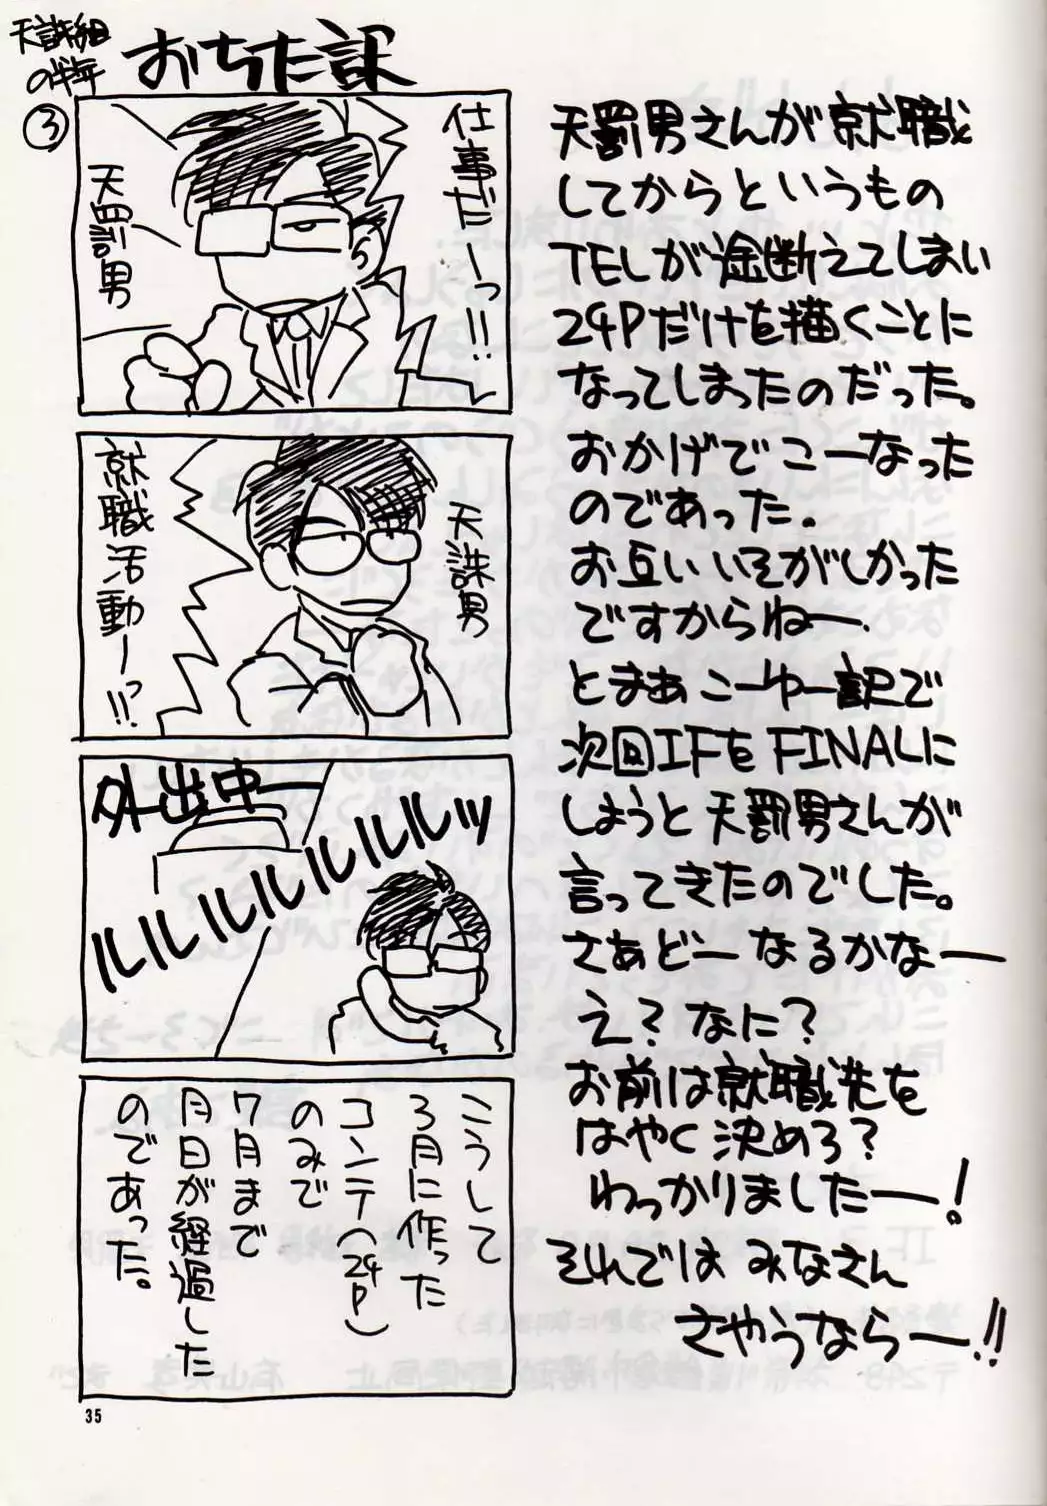 天誅組
の半年
おちた訳
③
仕事だーっ!!
天罰男
天誅男
就職活動ーっ!!
外出中ー
ルルルルルルルルッ
こうして
3月に作った
コンテ(24P)
のみで
7月まで
月日が経過した
のであった。
天罰男さんが就職
してからというもの
TELが途断えてしまい
24Pだけを描くことに
なってしまったのだった。
おかげでこーなった
のであった。
お互いいそがしかった
ですからねー.
とまあこーゆー訳で
次回IFをFINALに
しようと天罰男さんが
言ってきたのでした。
さあどーなるかなー
え?なに?
お前は就職先を
はやく決めろ?
わっかりましたー!
それではみなさん
さやうならー!!
35